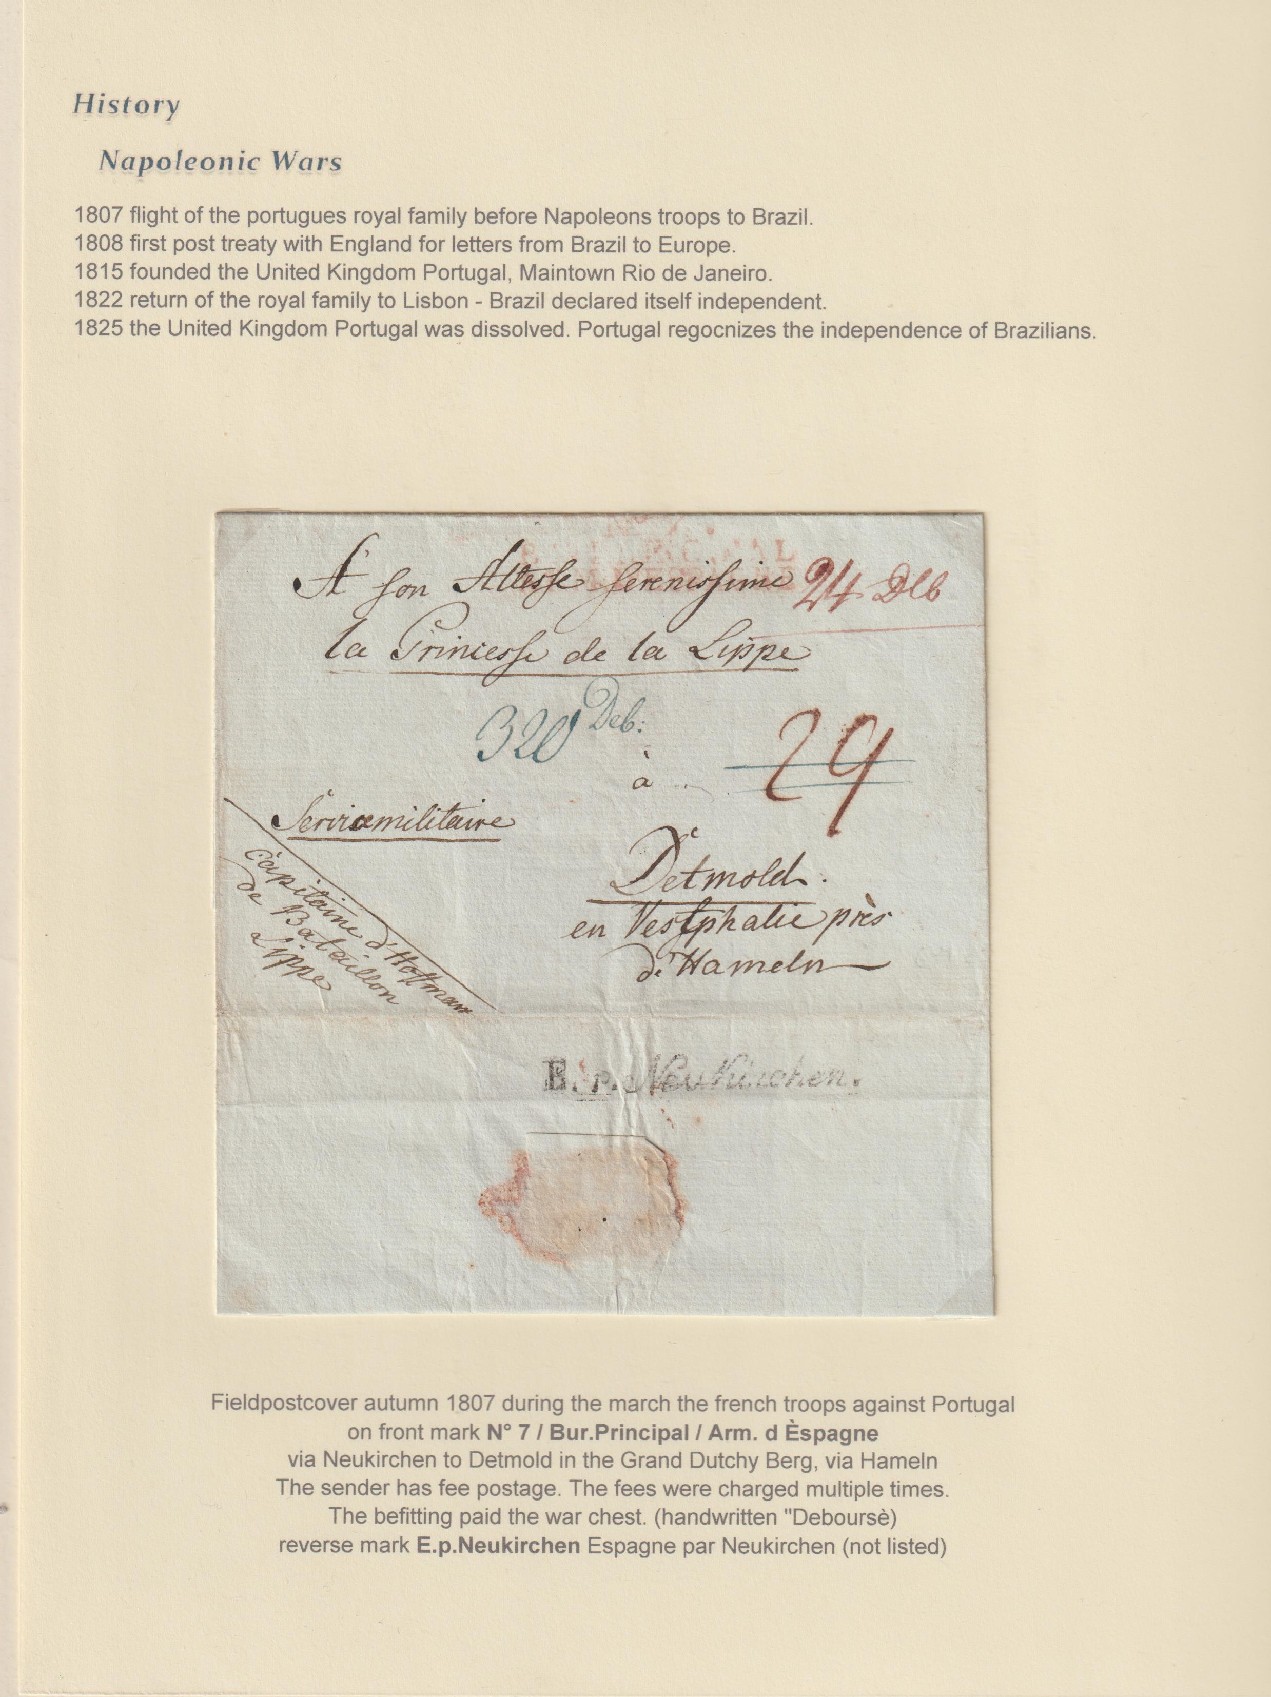 History
Napoleonic Wars
1807 flight of the portugues royal family before Napoleons troops to Brazil.
1808 first post treaty with England for letters from Brazil to Europe.
1815 founded the United Kingdom Portugal, Maintown Rio de Janeiro.
1822 return of the royal family to Lisbon - Brazil declared itself independent.
1825 the United Kingdom Portugal was dissolved. Portugal regocnizes the independence of Brazilians.
A son Altesse serenissime 24 Deb
la Princesse de la Lippe
320 Deb:
29
à
Service militaire
Capitaine d'Hoffman
de Bataillon
Lippe
Detmold.
en Vestphalie près
d'Hameln
E.p.Neukirchen.
Fieldpostcover autumn 1807 during the march the french troops against Portugal
on front mark N° 7 / Bur.Principal / Arm. d Èspagne
via Neukirchen to Detmold in the Grand Dutchy Berg, via Hameln
The sender has fee postage. The fees were charged multiple times.
The befitting paid the war chest. (handwritten "Deboursè)
reverse mark E.p.Neukirchen Espagne par Neukirchen (not listed)